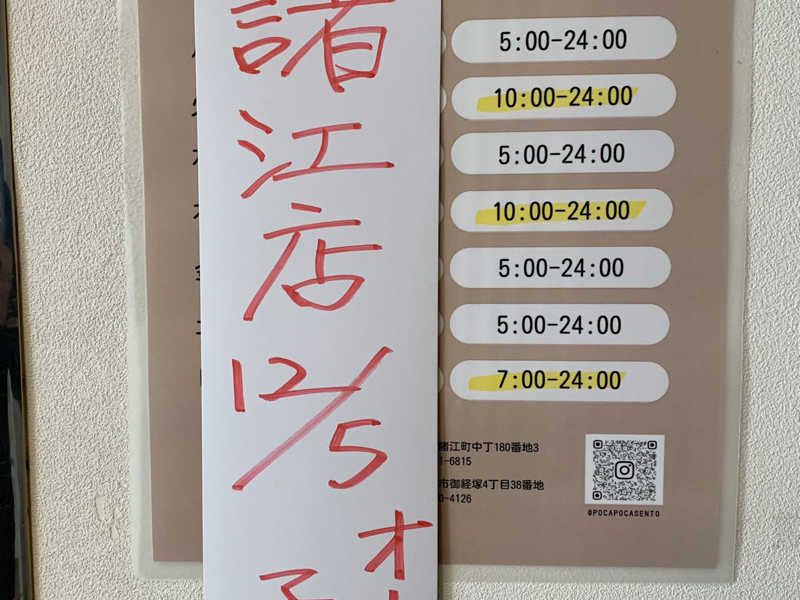 諸江店
12/5
オ
5:00-24:00
10:00-24:00
5:00-24:00
10:00-24:00
5:00-24:00
5:00-24:00
7:00-24:00
諸江町中丁180番地3
1-6815
市御経塚4丁目38番地
0-4126
@POCAPOCASENTO